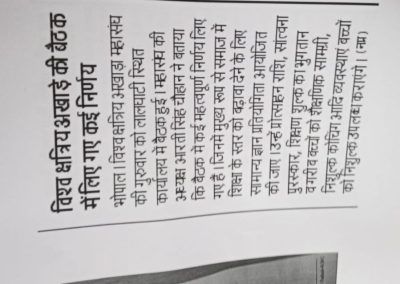 विश्व क्षत्रिय अखाड़े की बैठक
में लिए गए कई निर्णय
भोपाल। विश्व क्षत्रिय अखाड़ा महासंघ
की गुरुवार को लालघाटी स्थित
कार्यालय में बैठक हुई। महासंघ की
अध्यक्ष आरती सिंह चौहान ने बताया
कि बैठक में कई महत्वपूर्ण निर्णय लिए
गए हैं। जिनमें मुख्य रूप से समाज में
शिक्षा के स्तर को बढ़ावा देने के लिए
सामान्य ज्ञान प्रतियोगिता आयोजित
की जाए। उन्हें प्रोत्साहन राशि, सांत्वना
पुरस्कार, शिक्षण शुल्क का भुगतान
व गरीब बच्चों को शैक्षणिक सामग्री,
निशुल्क कोचिंग आदि व्यवस्थाएं बच्चों
को निशुल्क उपलब्ध कराएंगे। (नप्र)